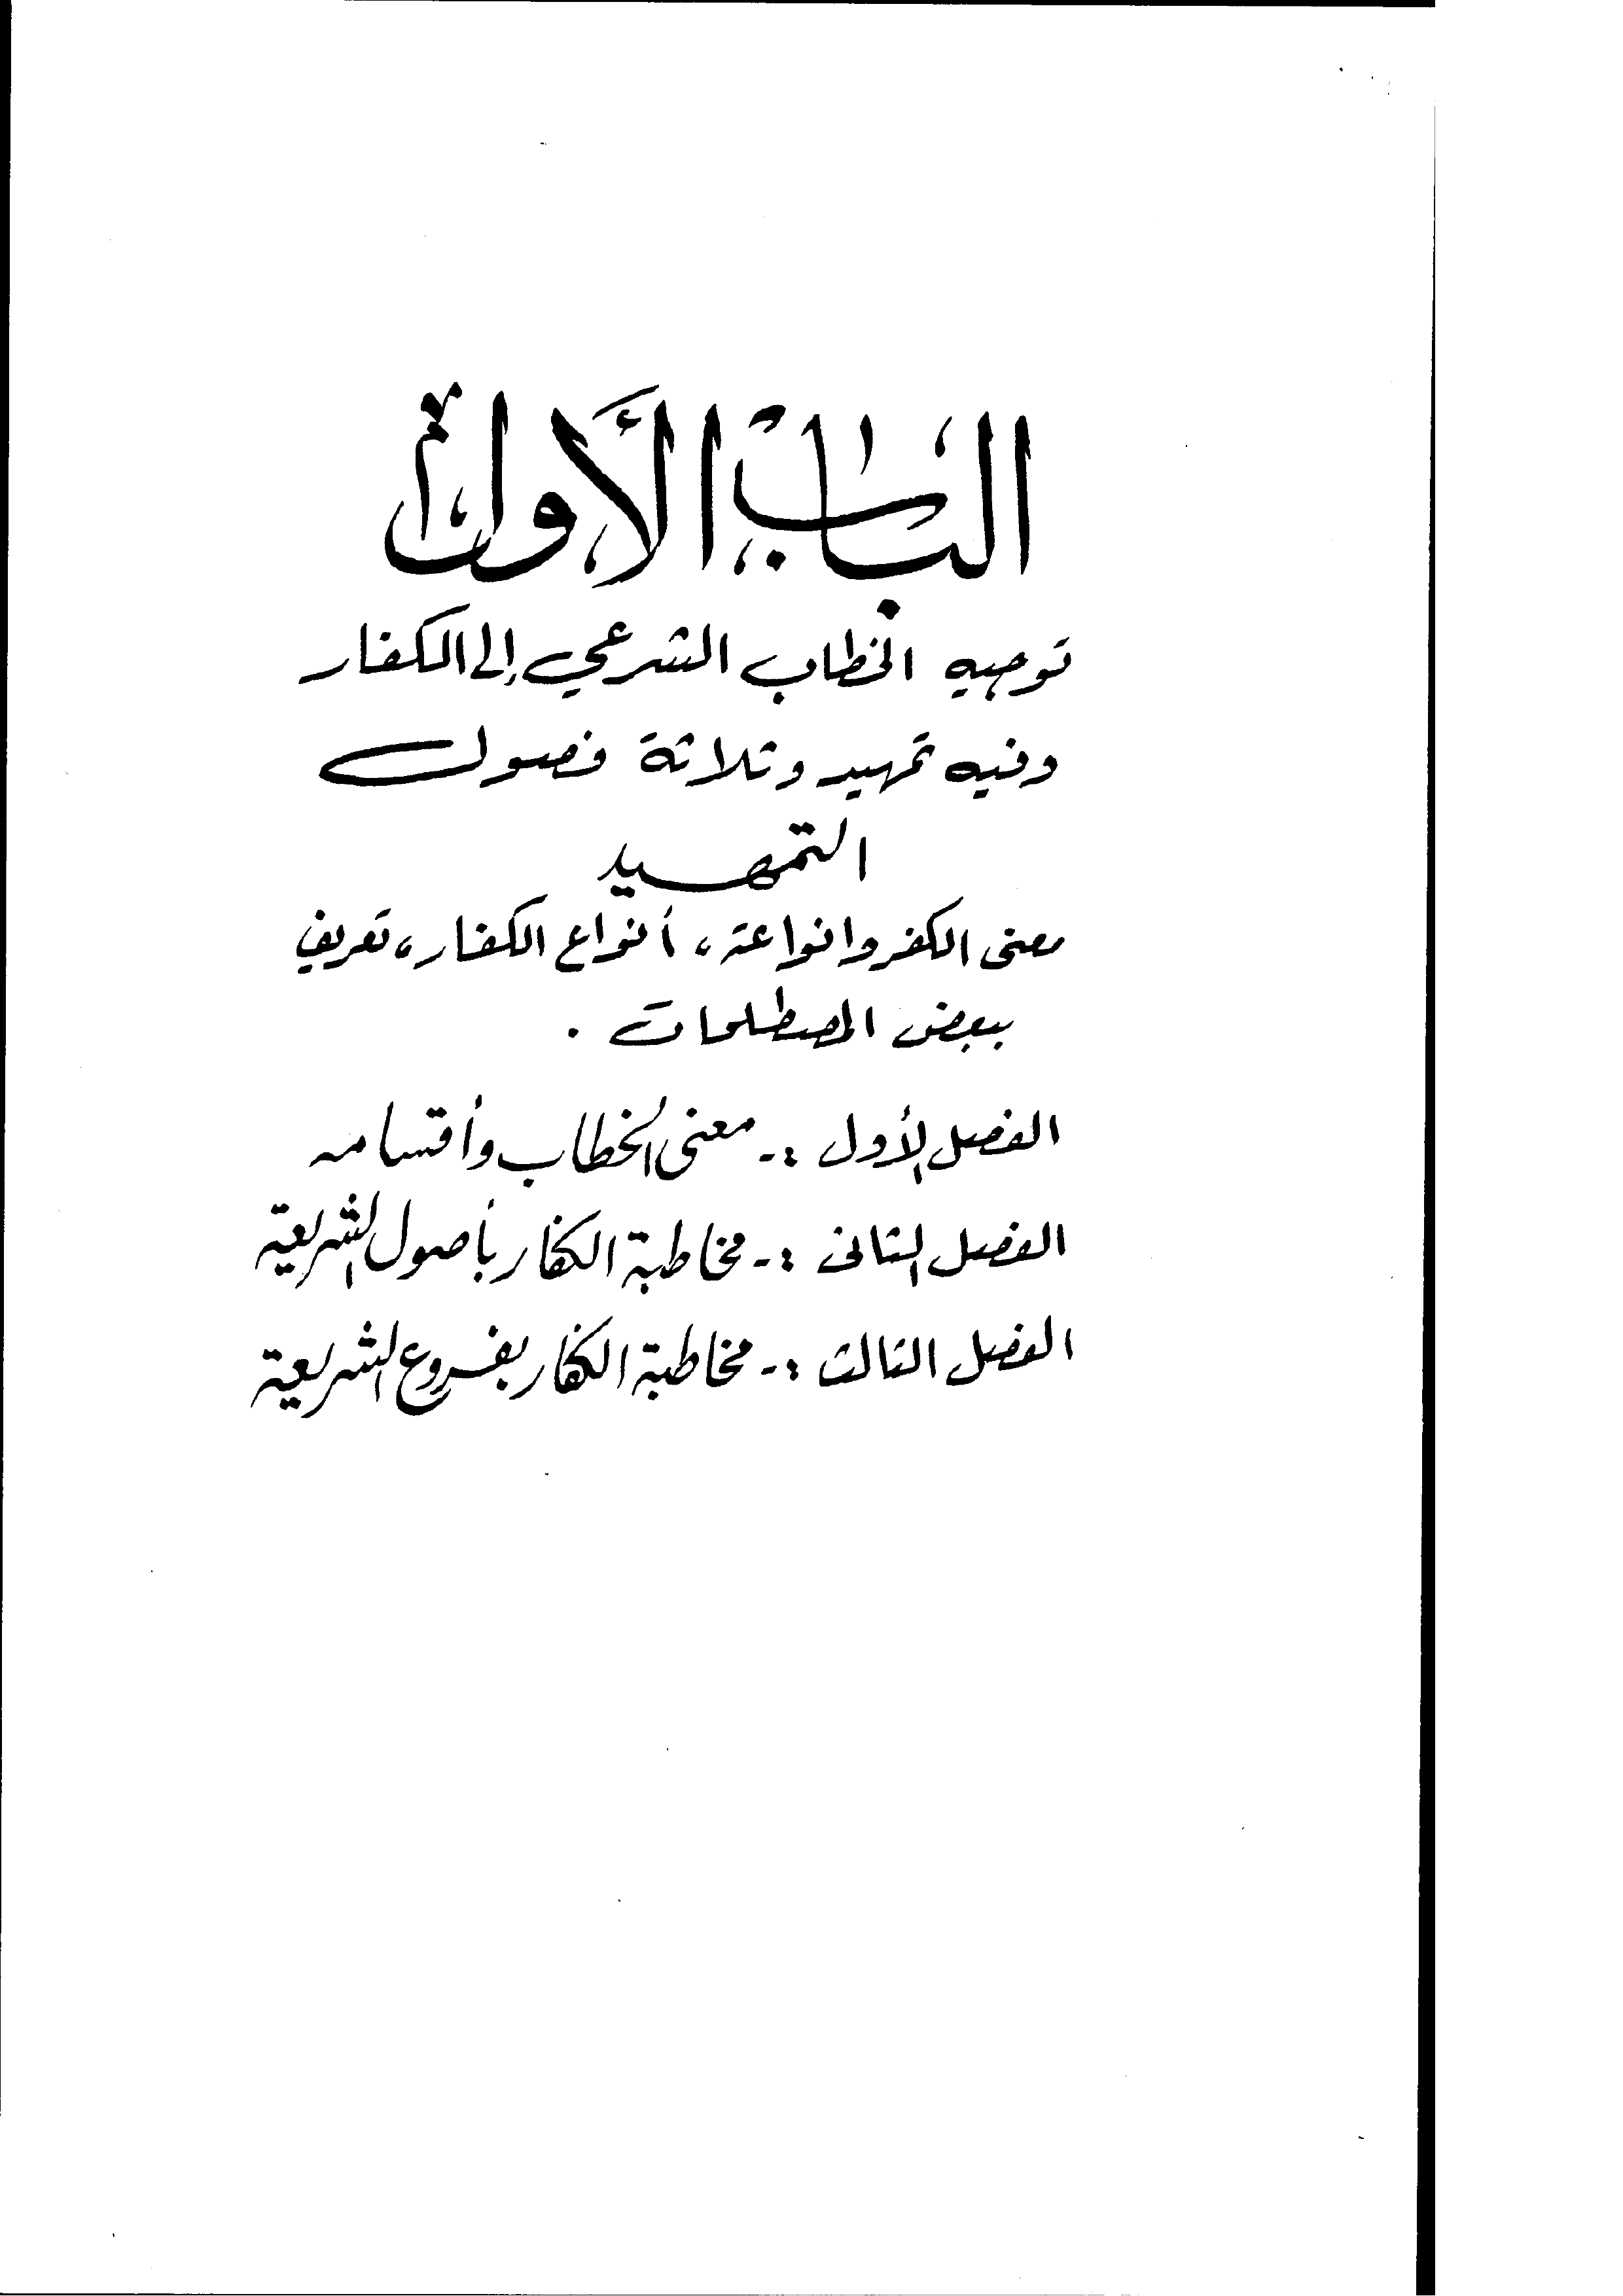 الباب الأول
توجيه الخطاب الشرعي إلى الكفار
وفيه تمهيد وثلاثة فصول
التمهيد
معنى الكفر وانواعة، أنواع الكفار، تعريف
ببعض المصطلحات .
الفصل الأول :- معنى الخطاب وأقسامه
الفصل الثاني :- مخاطبة الكفار بأصول الشريعة
الفصل الثالث :- مخاطبة الكفار بفروع الشريعة